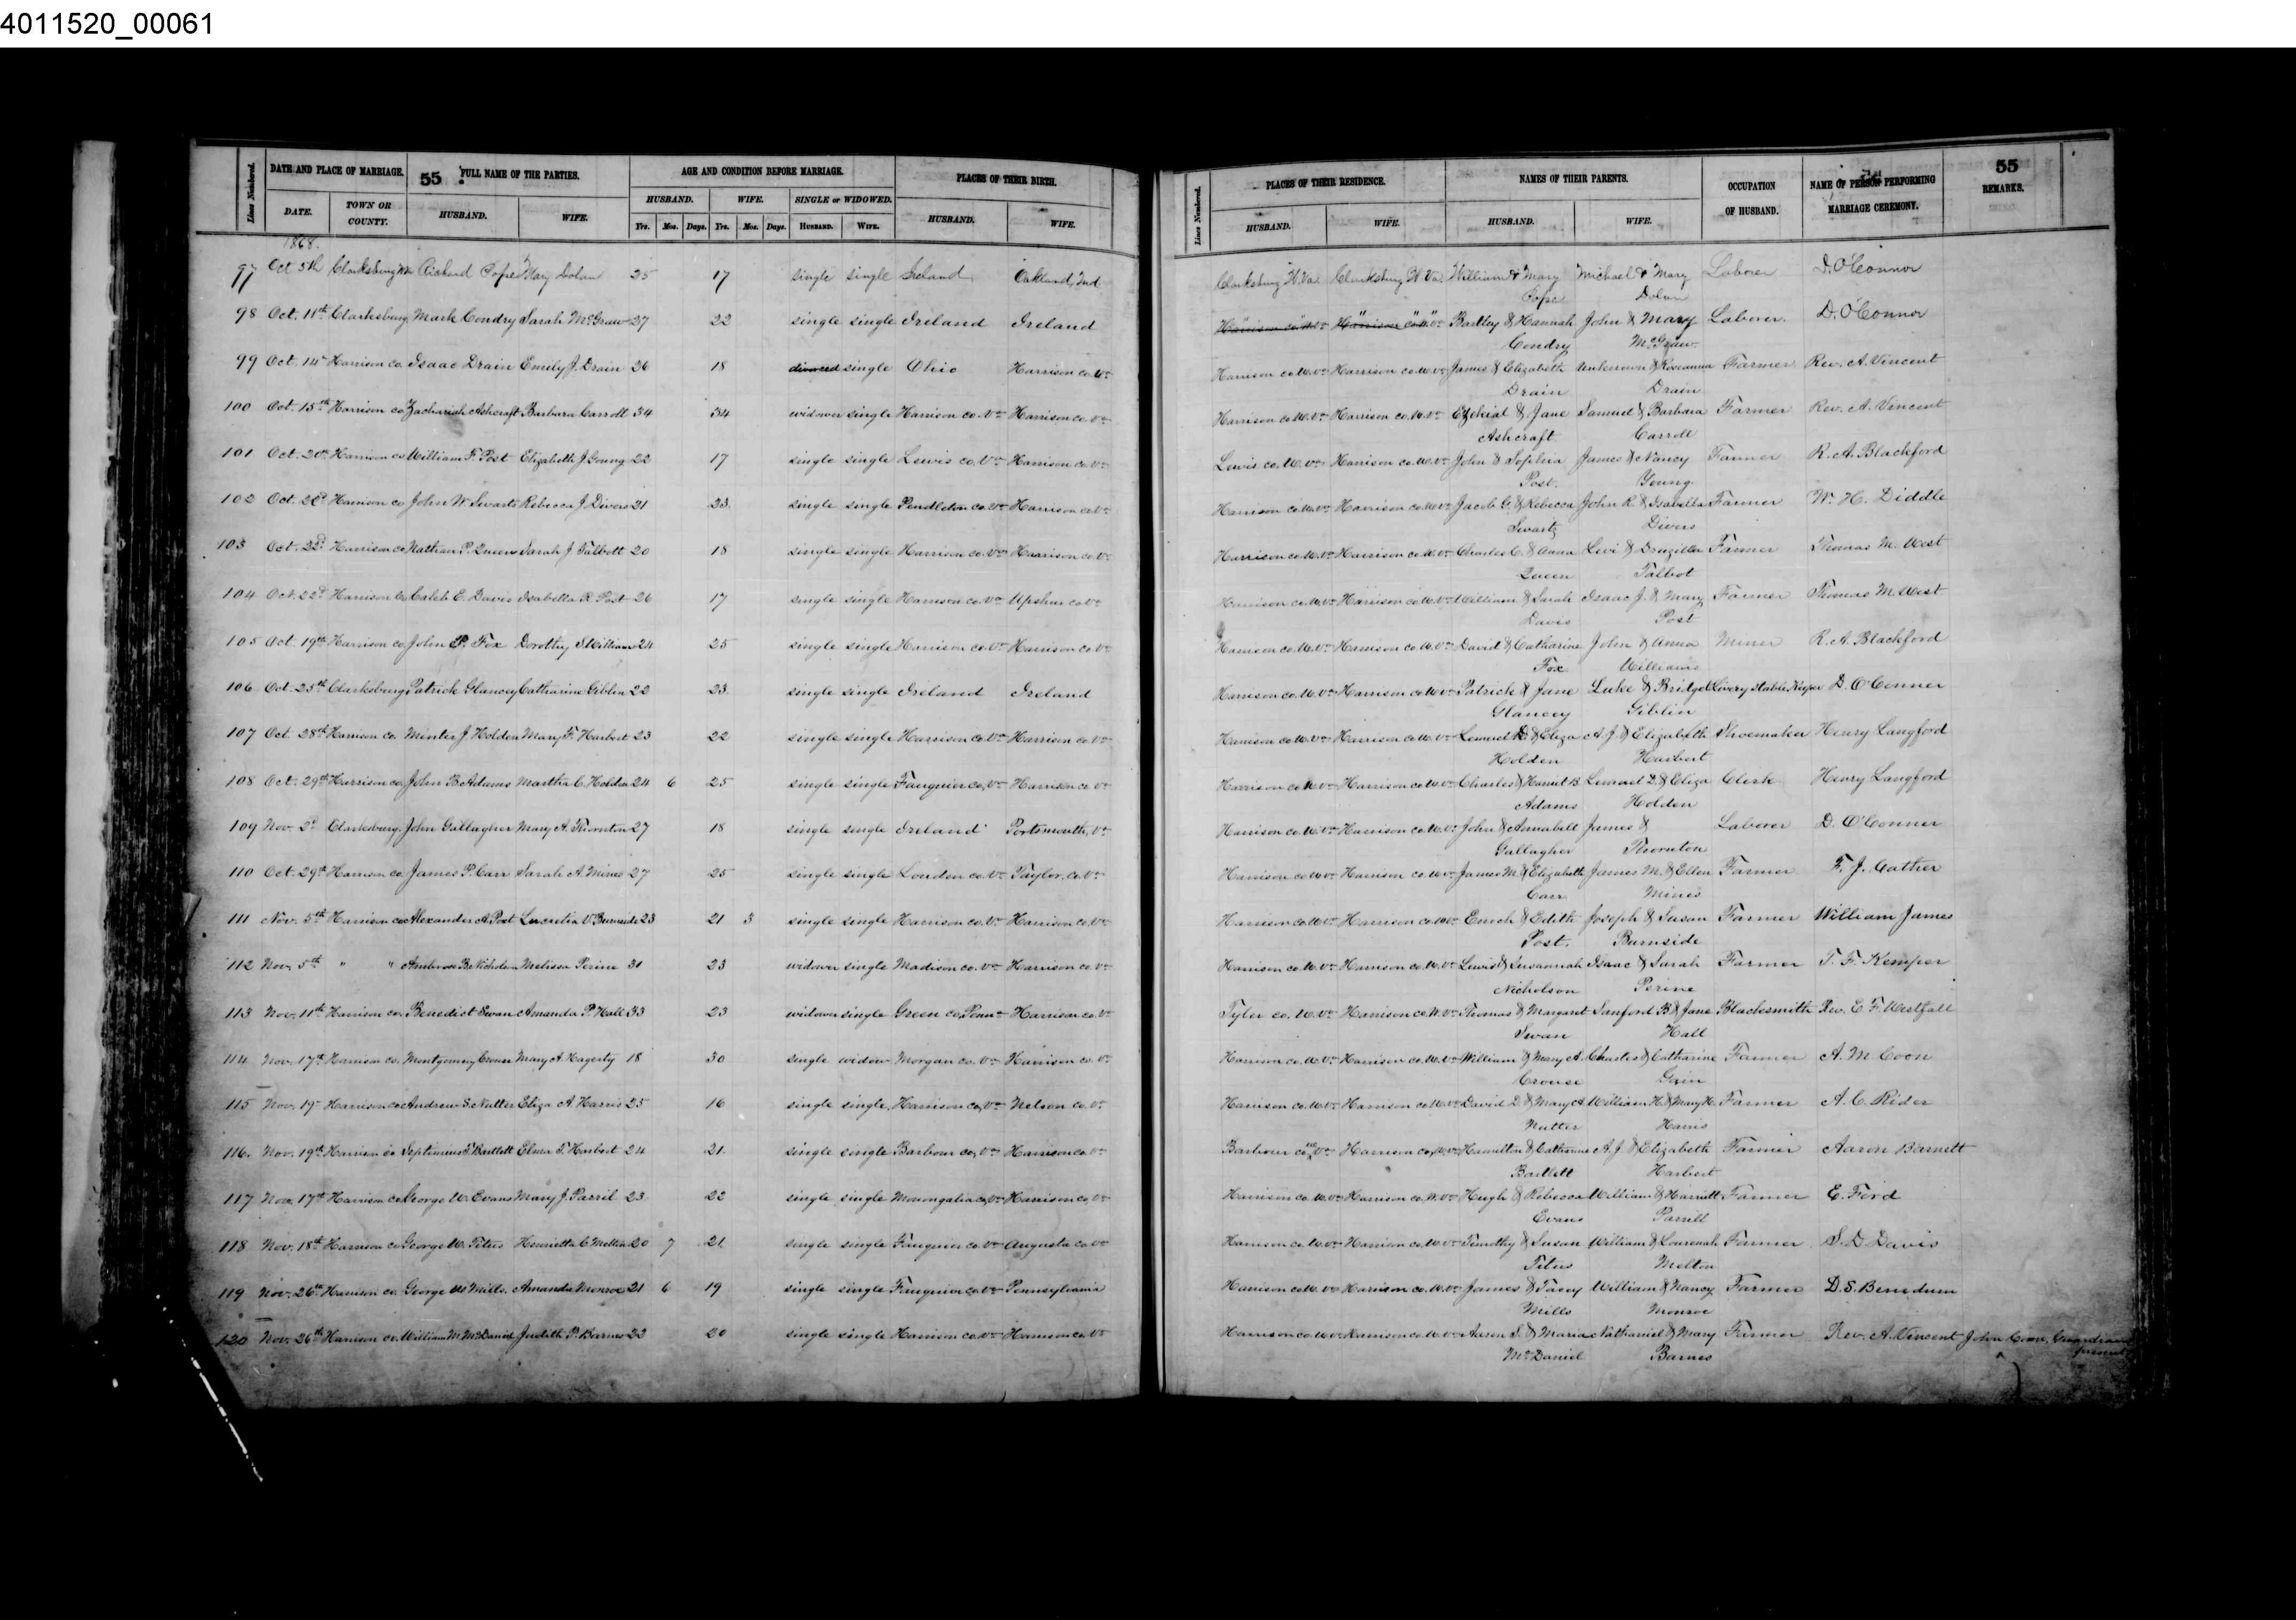 4011520_00061
Lines Numbered. DATE AND PLACE OF MARRIAGE. 55 FULL NAME OF THE PARTIES. AGE AND CONDITION BEFORE MARRIAGE. PLACES OF THEIR BIRTH. Lines Numbered. PLACES OF THEIR RESIDENCE. NAMES OF THEIR PARENTS. OCCUPATION OF HUSBAND. NAME OF PERSON PERFORMING MARRIAGE CEREMONY. 55 REMARKS.
DATE. TOWN OR COUNTY. HUSBAND. WIFE. HUSBAND. WIFE. SINGLE or WIDOWED. HUSBAND. WIFE. HUSBAND. WIFE. HUSBAND. WIFE.
Yrs. Mos. Days. Yrs. Mos. Days. HUSBAND. WIFE.
1868.
97 Oct 5th Clarksburg Richard Pope Mary Dolan 25 17 single single Ireland Oakland, Ind Clarksburg W.Va. Clarksburg W.Va. William & Mary Michael & Mary Laborer D. O'Connor
Pope Dolan
98 Oct. 11th Clarksburg Mark Condry Sarah McGraw 27 22 single single Ireland Ireland Harrison co. W. Va Harrison co. W. Va Bartley & Hannah John & Mary Laborer. D. O'Connor
Condry McGraw
99 Oct. 14 Harrison co. Isaac Drain Emily J. Drain 26 18 divorced single Ohio Harrison co. Va Harrison co. W. Va Harrison co. W. Va James & Elizabeth Unknown & Roseanna Farmer Rev. A. Vincent
Drain Drain
100 Oct. 15th Harrison co Zachariah Ashcraft Barbara Carroll 34 34 widower single Harrison co. Va Harrison co. Va Harrison co. W. Va Harrison co. W. Va Ezekial & Jane Samuel & Barbara Farmer Rev. A. Vincent
Ashcraft Carroll
101 Oct. 20th Harrison co William F. Post Elizabeth J. Young 22 17 single single Lewis co. Va Harrison co. Va Lewis co. W. Va Harrison co. W. Va John & Sophia James & Nancy Farmer R. A. Blackford
Post. Young
102 Oct. 22d Harrison co John W. Swarts Rebecca J. Divers 21 23 single single Pendleton co. Va Harrison co. Va Harrison co. W. Va Harrison co. W. Va Jacob G. & Rebecca John R. & Isabella Farmer W. H. Diddle
Swartz Divers
103 Oct. 22d Harrison co Nathan P. Queen Sarah J. Talbott 20 18 single single Harrison co. Va Harrison co. Va Harrison co. W. Va Harrison co. W. Va Charles C. & Anna Levi & Druzilla Farmer Thomas M. West
Queen Talbot
104 Oct. 22d Harrison co Caleb E. Davis Isabella R. Post 26 17 single single Harrison co. Va Upshur co. Va Harrison co. W. Va Harrison co. W. Va William & Sarah Isaac J. & Mary Farmer Thomas M. West
Davis Post
105 Oct. 19th Harrison co John P. Fox Dorothy S. Williams 24 25 single single Harrison co. Va Harrison co. Va Harrison co. W. Va Harrison co. W. Va David & Catharine John & Anna Miner R. A. Blackford
Fox Williams
106 Oct. 25th Clarksburg Patrick Glancey Catharine Giblin 22 23 single single Ireland Ireland Harrison co. W. Va Harrison co. W. Va Patrick & Jane Luke & Bridget Livery Stable Keeper D. O'Conner
Glancey Giblin
107 Oct. 28th Harrison co. Minter J. Holden Mary F. Harbert 23 22 single single Harrison co. Va Harrison co. Va Harrison co. W. Va Harrison co. W. Va Lemuel D. & Eliza A. J. & Elizabeth Shoemaker Henry Langford
Holden Harbert
108 Oct. 29th Harrison co. John B. Adams Martha C. Holden 24 6 25 single single Fauquier co, Va Harrison co. Va Harrison co. W. Va Harrison co. W. Va Charles & Harriet B. Lemuel D. & Eliza Clerk Henry Langford
Adams Holden
109 Nov. 2d Clarksburg. John Gallagher Mary A. Thornton 27 18 single single Ireland Portsmouth, Va Harrison co. W. Va Harrison co. W. Va John & Annabell James & Laborer D. O'Conner
Gallagher Thornton
110 Oct. 29th Harrison co James P. Carr Sarah A. Mines 27 25 single single Louden co. Va Taylor, co. Va Harrison co. W. Va Harrison co. W. Va James M. & Elizabeth James M. & Ellen Farmer F. J. Cather
Carr Mines
111 Nov. 5th Harrison co. Alexander A. Post Lucretia V. Burnside 23 21 3 single single Harrison co. Va Harrison co. Va Harrison co. W. Va Harrison co. W. Va Enoch & Edith Joseph & Susan Farmer William James
Post. Burnside
112 Nov. 5th " " Ambrose B. Nicholson Melissa Perine 31 23 widower single Madison co. Va Harrison co. Va Harrison co. W. Va Harrison co. W. Va Lewis & Susannah Isaac & Sarah Farmer T. F. Kemper
Nicholson Perine
113 Nov. 11th Harrison co. Benedict Swan Amanda P. Hall 33 23 widower single Green co, Penn Harrison co. Va Tyler co. W. Va Harrison co. W. Va Thomas & Margaret Sanford B. & Jane Blacksmith Rev. E. F. Westfall
Swan Hall
114 Nov. 17th Harrison co. Montgomery Crouse Mary A. Hagerty 18 30 single widow Morgan co. Va Harrison co. Va Harrison co. W. Va Harrison co. W. Va William & Mary A. Charles & Catharine Farmer A. M. Coon
Crouse
115 Nov. 19 Harrison co Andrew S. Nutter Eliza A. Harris 25 16 single single Harrison co, Va Nelson co. Va Harrison co. W. Va Harrison co. W. Va David D. & Mary A. William H. & Mary H. Farmer A. C. Rider
Nutter Harris
116. Nov. 19th Harrison co Septimius T. Bartlett Elma T. Harbert 24 21 single single Barbour co, Va Harrison co. Va Barbour co. W. Va Harrison co, W. Va Hamilton & Catharine A. J. & Elizabeth Farmer Aaron Barnett
Bartlett Harbert
117 Nov. 17th Harrison co. George W. Evans Mary J. Parril 23 22 single single Monongalia co, Va Harrison co, Va Harrison co. W. Va Harrison co, W. Va Hugh & Rebecca William & Harriett Farmer E. Ford
Evans Parrill
118 Nov. 18th Harrison co George W. Titus Henrietta C. Melton 20 7 21 single single Fauquier co. Va Augusta co. Va Harrison co. W. Va Harrison co. W. Va Timothy & Susan William & Lourenah Farmer S. D. Davis
Titus Melton
119 Nov. 26th Harrison co. George W. Mills. Amanda Monroe 21 6 19 single single Fauquier co. Va Pennsylvania Harrison co. W. Va Harrison co. W. Va James & Tacey William & Nancy Farmer D. S. Benedum
Mills Monroe
120 Nov. 26th Harrison co. William M. McDaniel Judith P. Barnes 22 20 single single Harrison co. Va Harrison co. Va Harrison co. W. Va Harrison co. W. Va Aaron S. & Maria Nathaniel & Mary Farmer Rev. A. Vincent John Coon, Guardian
McDaniel Barnes present